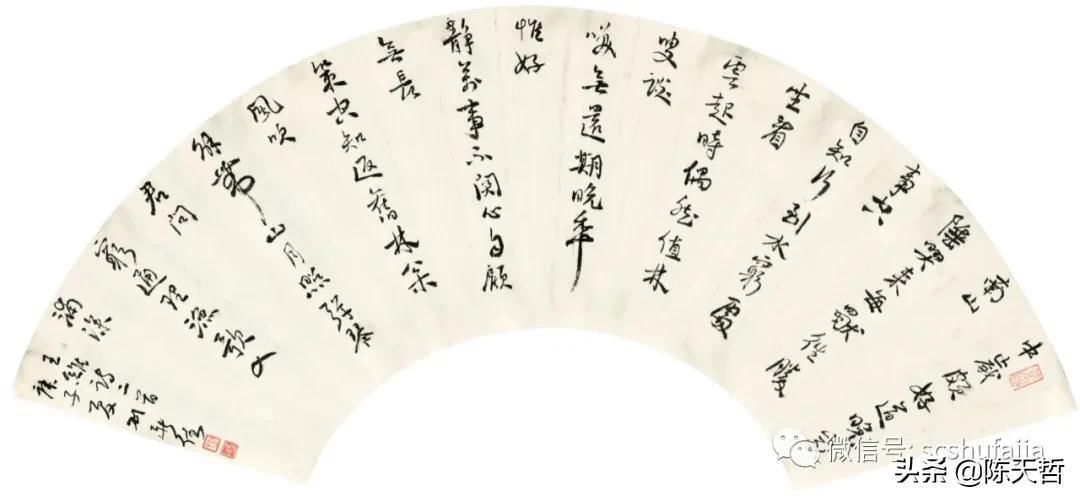 中歲頗好道晚家
南山
陲興來每獨往勝
事空
自知行到水窮處
坐看
雲起時偶然值林
叟談
笑無還期晚年
惟好
靜萬事不關心自顧
無長
策空知返舊林松
風吹
解帶山月照彈琴
君問
窮通理漁歌入
浦深
王維詩二首
庚子夏
微信号: scshufajia
头条 @陈天哲